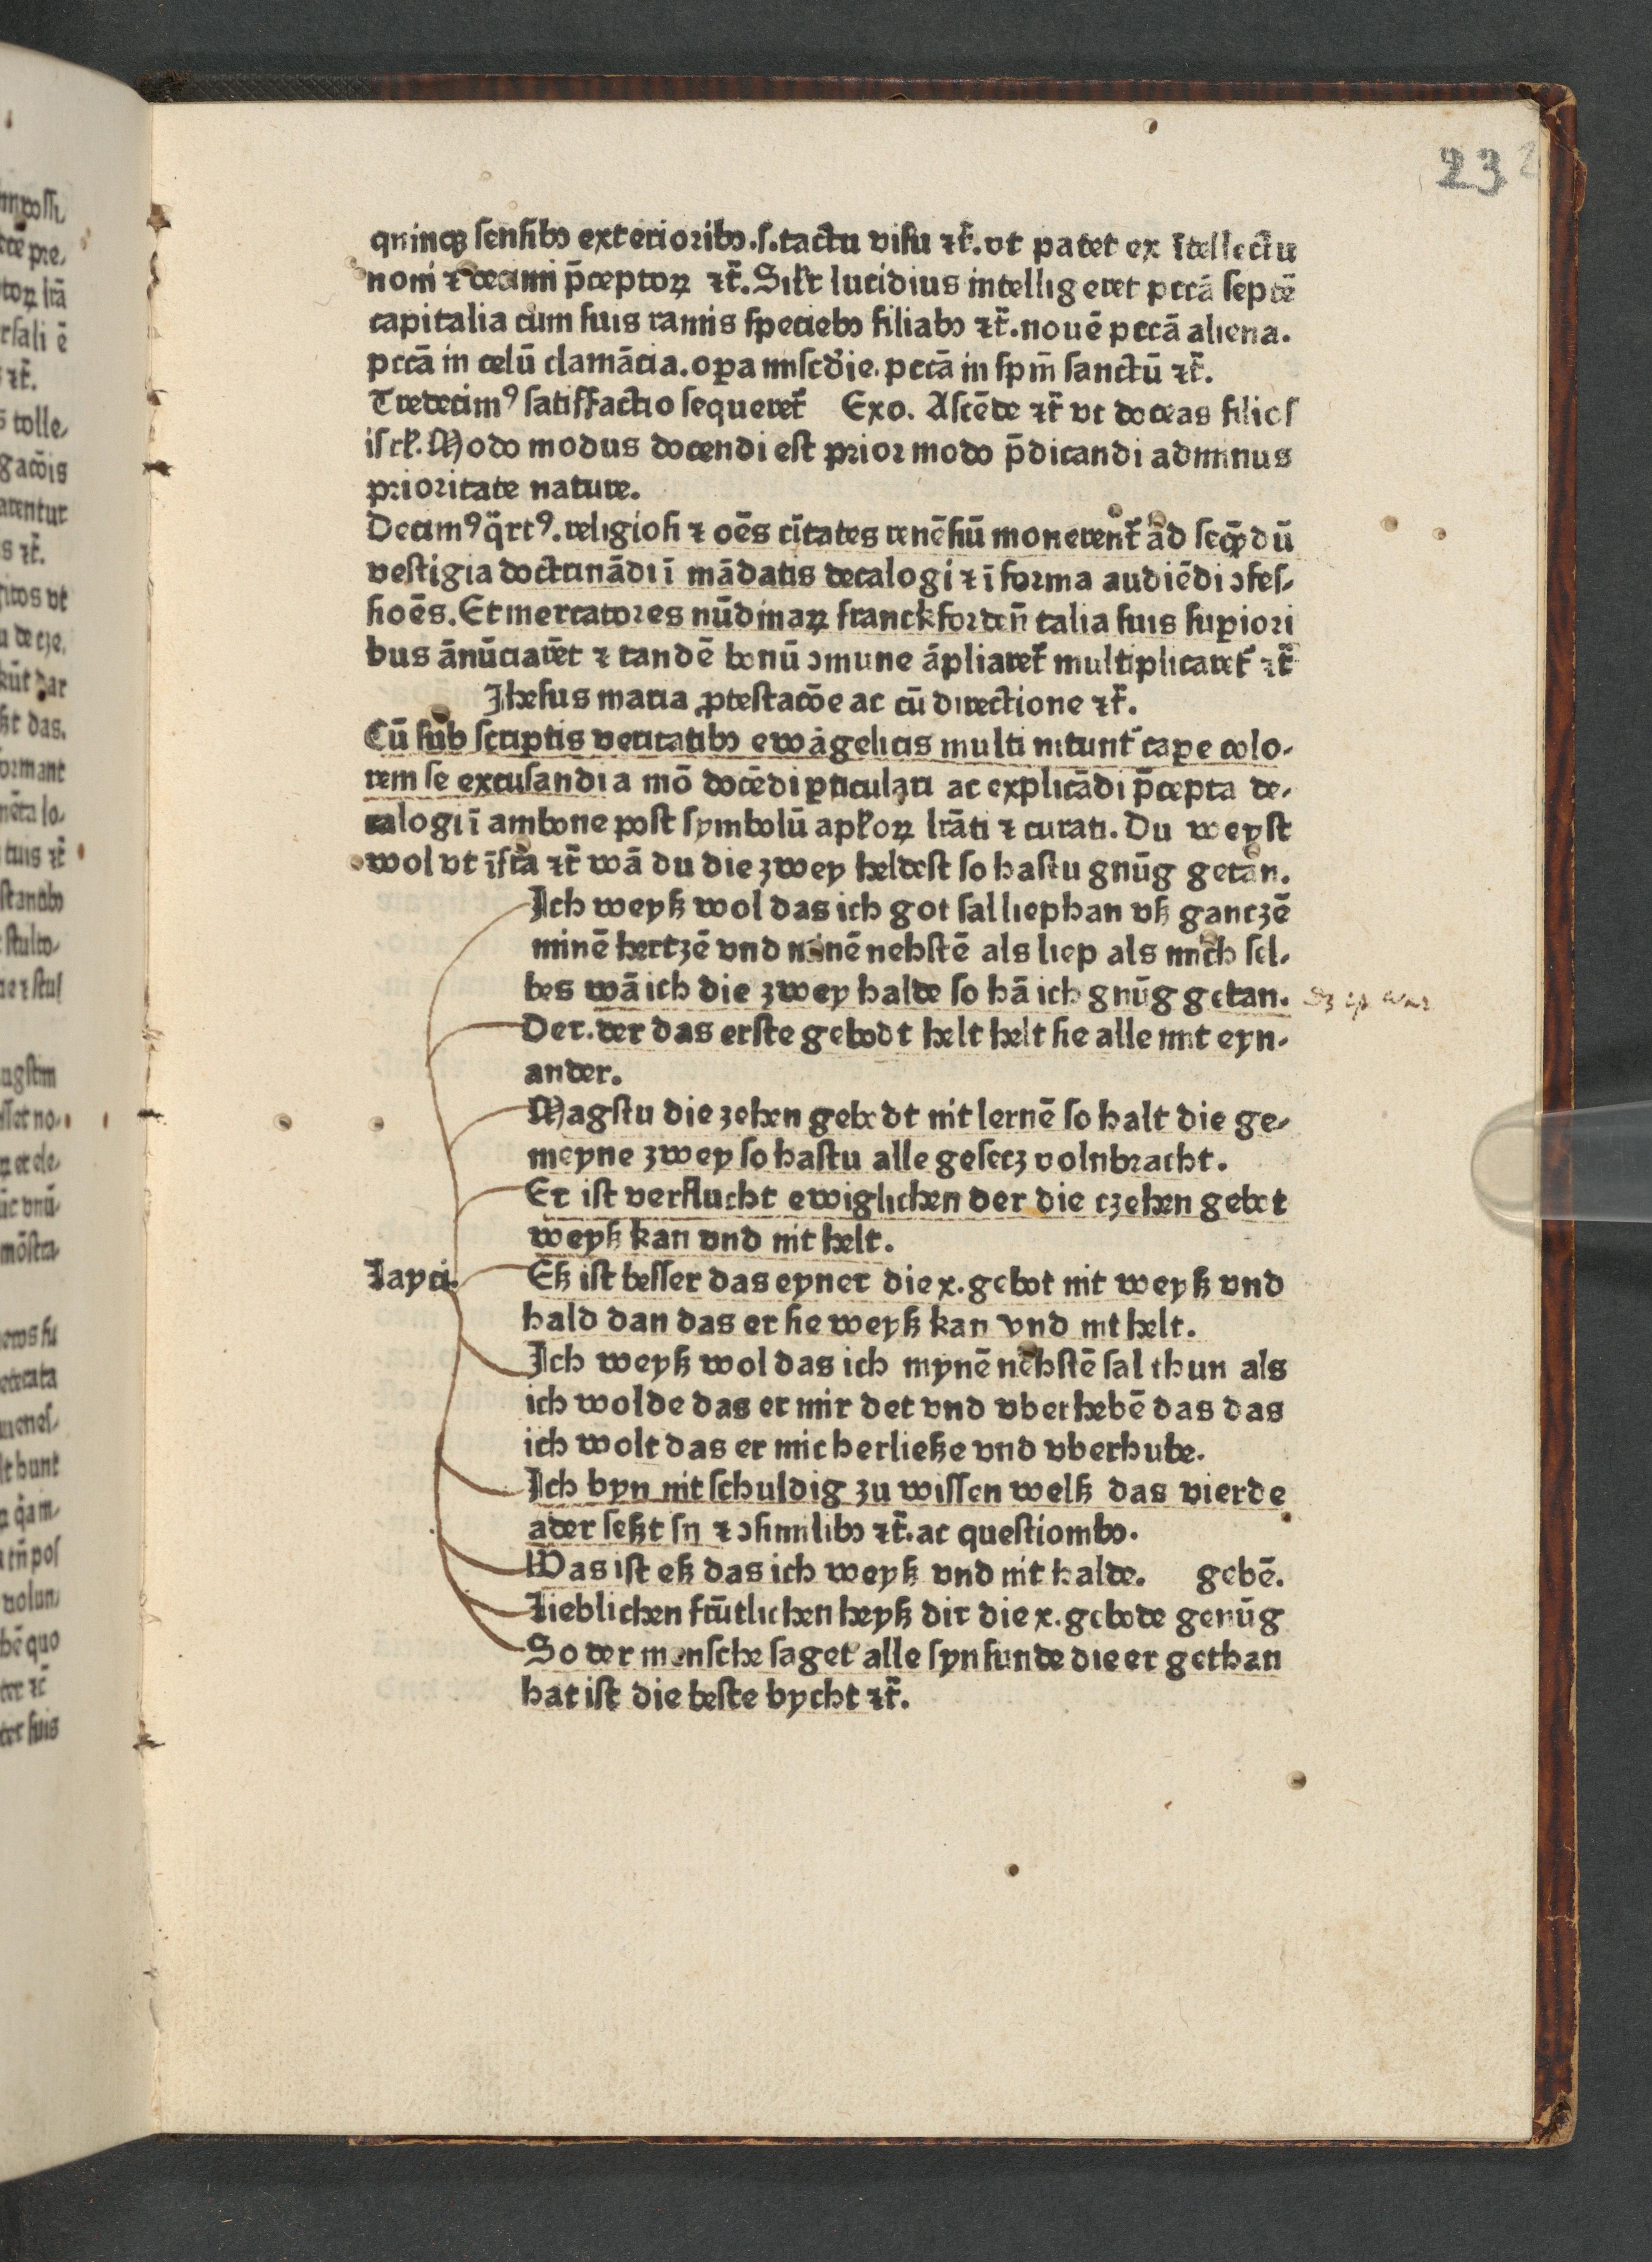 23
quinqꝫ ſenſibꝰ exterioribꝰ.ſ.tactu viſu ⁊c̄. vt patet ex ītellectu
noni ⁊ decimi p̄ceptoꝝ ⁊c̄. Silr̄ lucidius intelligeret pccā ſeptē
capitalia cum ſuis ramis ſpeciebꝰ filiabꝰ ⁊c̄. nouē pccā aliena.
pccā in celū clamācia. oꝑa miſcd̄ie. pccā in ſpm̄ ſanctū ⁊c̄.
Tredecimꝰ ſatiſfactio ſequeret̄ Exo. Aſcēde ⁊c̄ vt doceas filioſ
iſrl̄. Modo modus docendi eſt prior modo p̄dicandi adminus
prioritate nature.
Decimꝰq̈rtꝰ. religioſi ⁊ oēs cītates renēſiū monerent̄ ad ſeq̄ndū
veſtigia doctrināndi ī mādatis decalogi ⁊ ī forma audiēdi ɔfeſ⸗
ſioēs. Et mercatores nūdinaꝝ franckforden̄ talia ſuis ſuꝑiori
bus ānūciarēt ⁊ tandē bonū ɔmune āpliaret̄ multiplicaret̄ ⁊c̄
Jheſus maria ꝓteſtacōe ac cū directione ⁊c̄.
Cū ſub ſcriptis veritatibꝰ ewāgelicis multi nitunt̄ caꝑe colo⸗
rem ſe excuſandi a mō docēdi ꝑticulari ac explicādi p̄cepta de⸗
calogi ī ambone poſt ſymbolū apl̄oꝝ lr̄ati ⁊ curati. Du weyſt
wol vt īfra ⁊c̄ wā du die zwey heldeſt ſo haſtu gnūg getan.
Ich weyß wol das ich got ſal liep han vß gantzē
minē hertzē vnd minē nehſtē als liep als mich ſel⸗
bes wā ich die zwey halde ſo hā ich gnūg getan.
Der. der das erſte gebodt helt helt ſie alle mit eyn⸗
ander.
Magſtu die zehen gebodt nit lernē ſo halt die ge⸗
meyne zwey ſo haſtu alle geſetz volnbracht.
Er iſt verflucht ewiglichen der die czehen gebot
weyß kan vnd nit helt.
Layci. Eß iſt beſſer das eyner die x. gebot nit weyß vnd
hald dan das er ſie weyß kan vnd nit helt.
Ich weyß wol das ich mynē nehſtē ſal thun als
ich wolde das er mir det vnd vberhebē das das
ich wolt das er mich erließe vnd vberhube.
Ich byn nit ſchuldig zu wiſſen welß das vierde
ader ſeßt ſij ⁊ ɔſimilibꝰ ⁊c̄. ac queſtionibꝰ.
Was iſt eß das ich weyß vnd nit halde. gebē.
Lieblichen frūtlichen heyß dir die x. gebode genūg
So der menſche ſaget alle ſyn ſunde die er gethan
hat iſt die beſte bycht ⁊c̄.